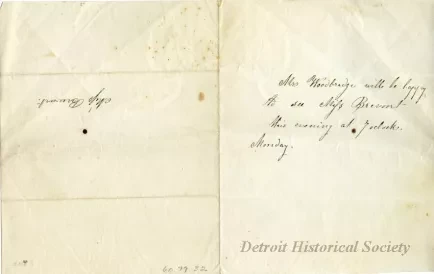 Mrs Woodbridge will be happy
to see Miss Brevoort
this evening at 7 oclock.
Monday.
Miss Brevoort.
Detroit Historical Society